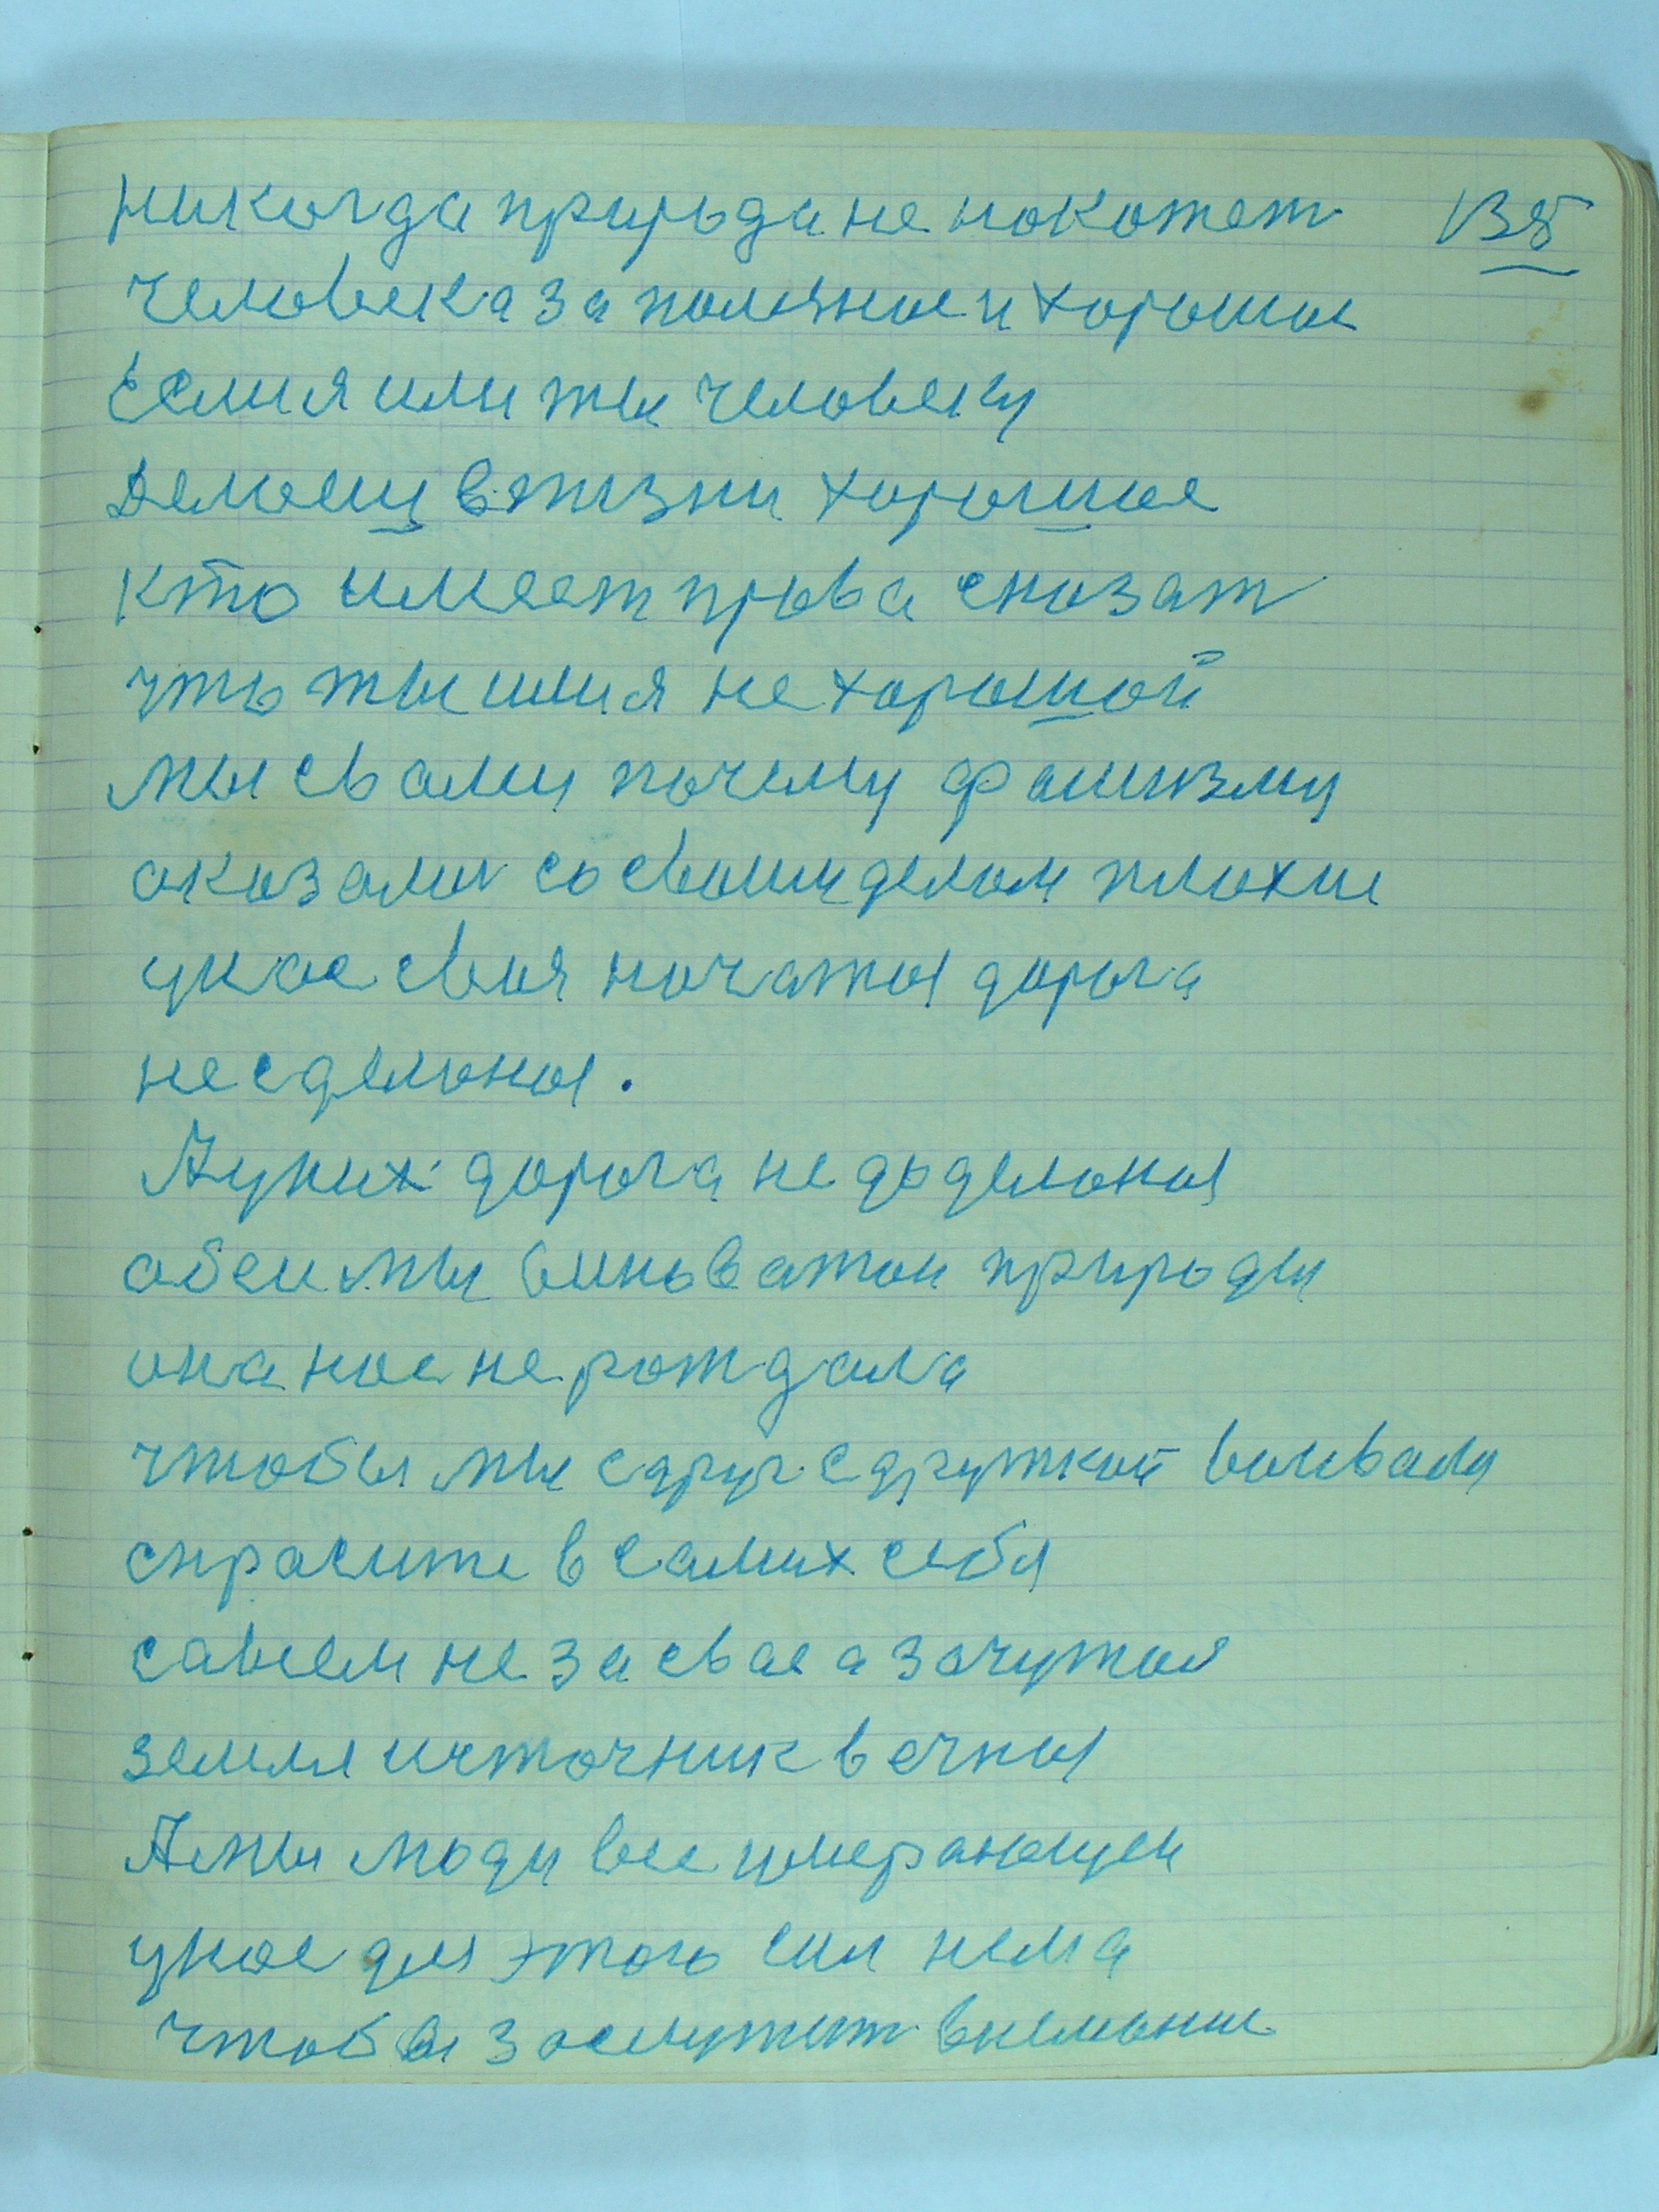 Никогда природа не нокожет 135
человека за полезное и хорошое
Если я или ты человеку
Делаеш в жизни хорошое
кто имеет права сказат
что ты или я не хорошой
мы свами почему фашизму
оказали со своим делом плохие
унас своя начатоя дорога
не сделоная.
А уних дорога не доделоная
обеи мы виноватои природы
она нас не рождала
чтобы мы с друг с дружкой воивали
спросите в самих себя
савсем не за свое а за чужоя
земля источник вечная
А мы люди все умерающеи
унас для этого сил нема
чтобы заслужит внемание